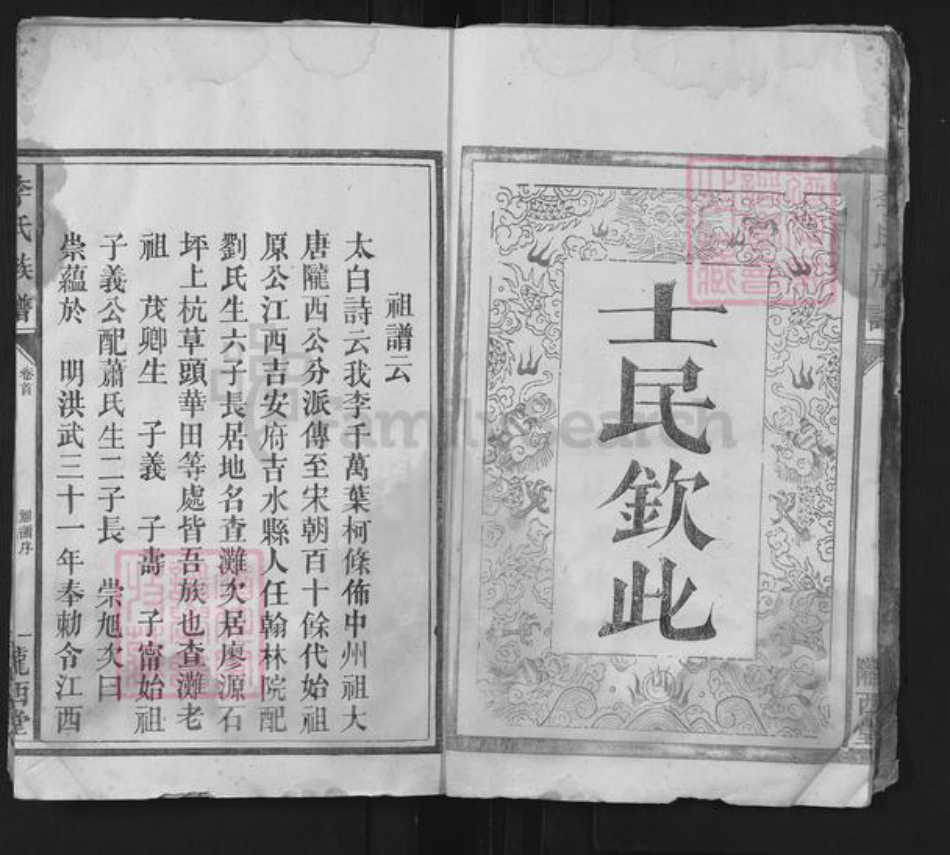 士民欽此
李氏族譜
隴西堂
祖譜云
太白詩云我李千萬葉柯條佈中州祖大
唐隴西公分派傳至宋朝百十餘代始祖
原公江西吉安府吉水縣人任翰林院配
劉氏生六子長居地名查灘次居廖源石
坪上杭草頭華田等處皆吾族也查灘老
祖 茂卿生 子義 子壽 子甯始祖
子義公配蕭氏生二子長 崇旭次曰
崇蘊於 明洪武三十一年奉勅令江西
李氏族譜
卷首
譜序
一
隴西堂
FamilySearch